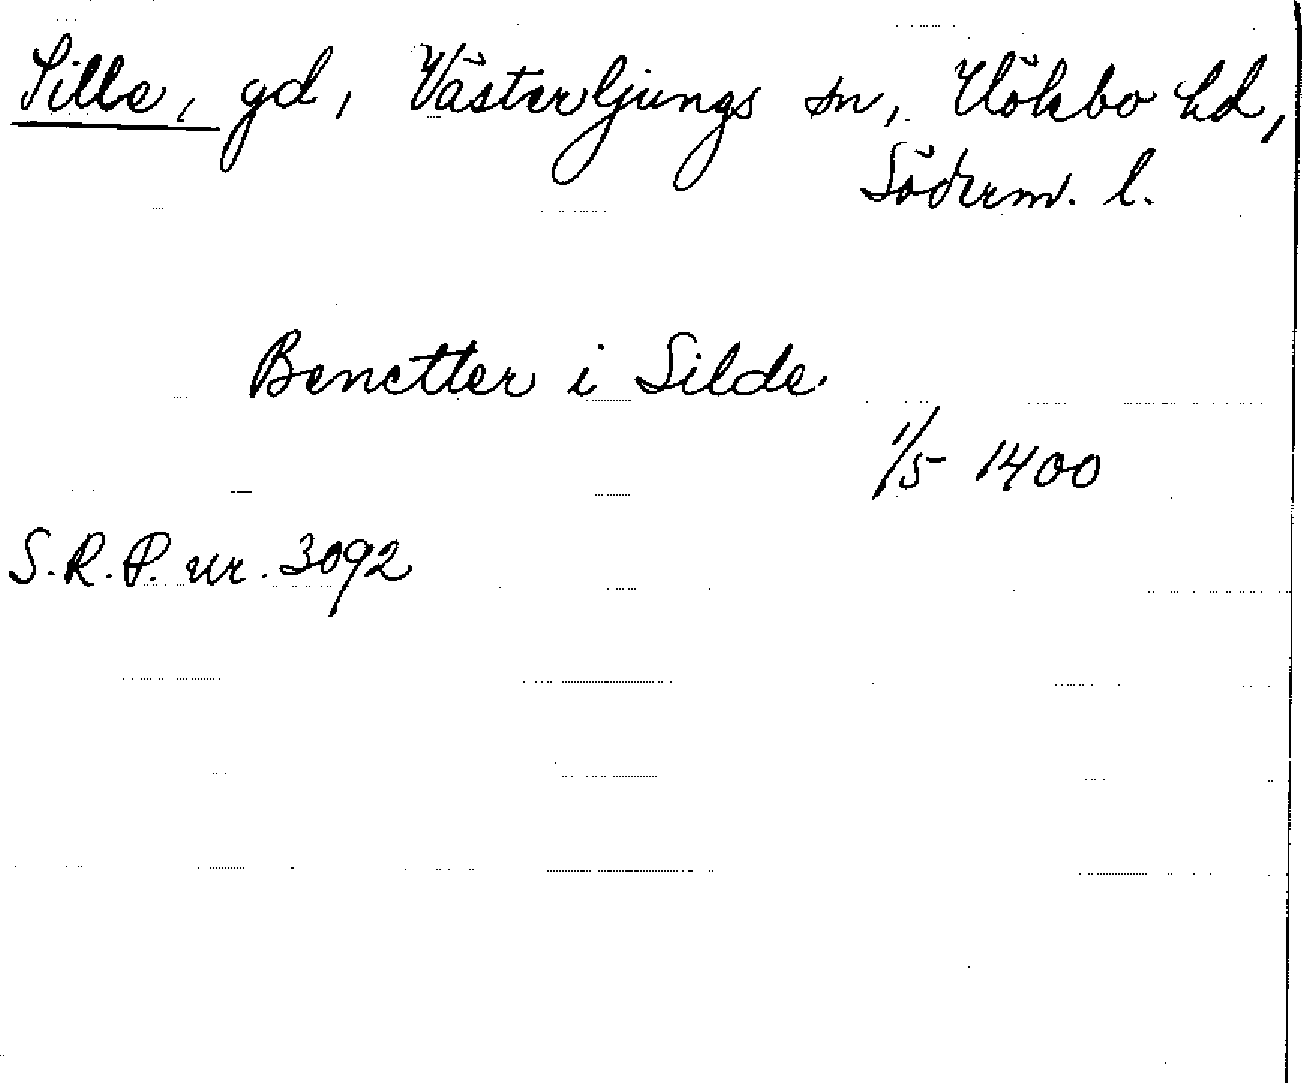 Sille, gd, Västerljungs sn, Hölebo hd,
Söderm. l.
Benetter i Silde.
1/5 1400
S.R.P. nr. 3092